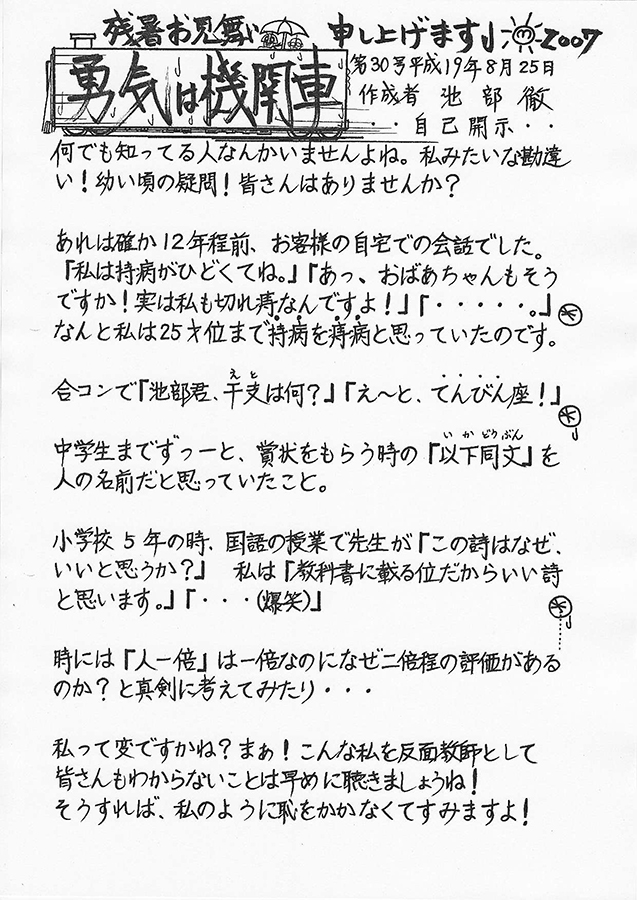 残暑お見舞い申し上げます」2007
勇気は機関車
第30号平成19年8月25日
作成者 池部 徹
・・自己開示・・
何でも知ってる人なんかいませんよね。私みたいな勘違
い！幼い頃の疑問！皆さんはありませんか？
あれは確か12年程前、お客様の自宅での会話でした。
『私は持病がひどくてね。』『あっ、おばあちゃんもそう
ですか！実は私も切れ痔なんですよ！』『・・・・・。』
なんと私は25才位まで持病を痔病と思っていたのです。
合コンで『池部君、干支は何？』『え〜と、てんびん座！』
えと
中学生までずっーと、賞状をもらう時の『以下同文』を
いかどうぶん
人の名前だと思っていたこと。
小学校5年の時、国語の授業で先生が『この詩はなぜ、
いいと思うか？』 私は『教科書に載る位だからいい詩
と思います。』『・・・(爆笑)』
時には『人一倍』は一倍なのになぜ二倍程の評価がある
のか？と真剣に考えてみたり・・・
私って変ですかね？まぁ！こんな私を反面教師として
皆さんもわからないことは早めに聴きましょうね！
そうすれば、私のように恥をかかなくてすみますよ！